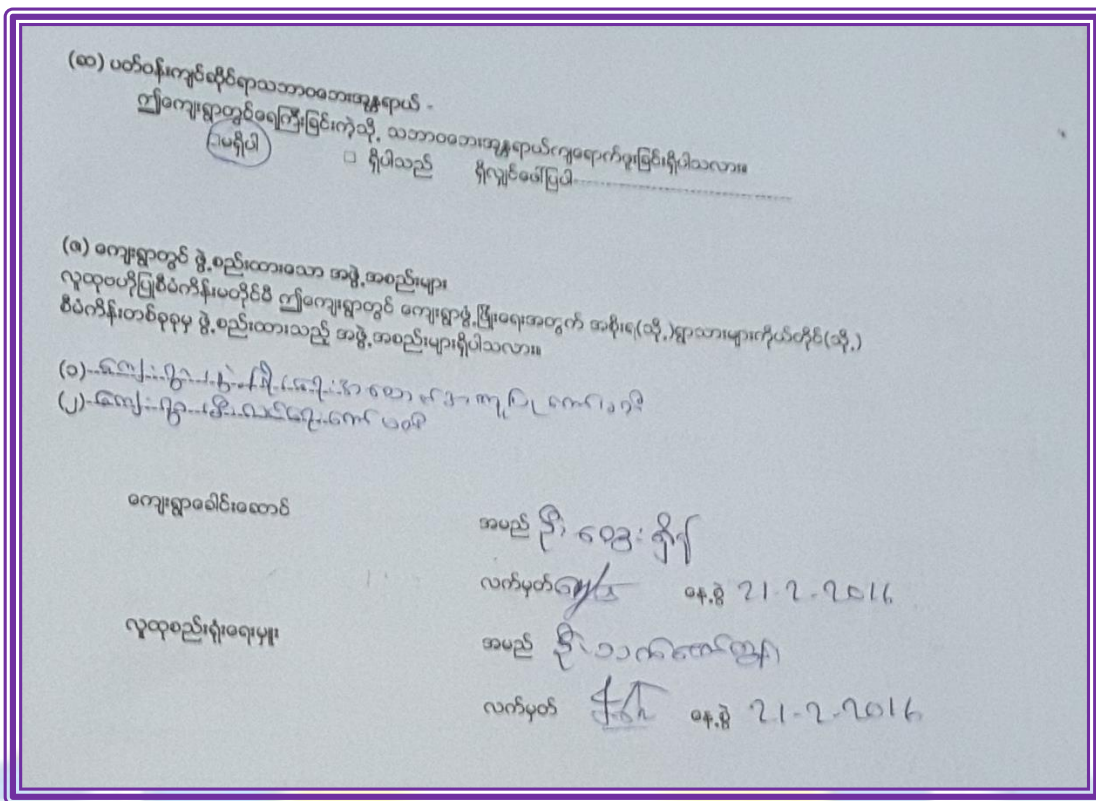 (ဆ) ပတ်ဝန်းကျင်ဆိုင်ရာသဘာဝဘေးအန္တရာယ် -
ဤကျေးရွာတွင်ရေကြီးခြင်းကဲ့သို့ သဘာဝဘေးအန္တရာယ်ကျရောက်ဖူးခြင်းရှိပါသလား။
□မရှိပါ □ ရှိပါသည် ရှိလျှင်ဖော်ပြပါ........................................
(ဇ) ကျေးရွာတွင် ဖွဲ့စည်းထားသော အဖွဲ့အစည်းများ
လူထုဗဟိုပြုစီမံကိန်းမတိုင်မီ ဤကျေးရွာတွင် ကျေးရွာဖွံ့ဖြိုးရေးအတွက် အစိုးရ(သို့)ရွာသားများကိုယ်တိုင်(သို့)
စီမံကိန်းတစ်ခုခုမှ ဖွဲ့စည်းထားသည့် အဖွဲ့အစည်းများရှိပါသလား။
(၁) ကျေးရွာ အထောက်အကူပြု ကော်မတီ
(၂) ကျေးရွာ မီးလင်းရေး ကော်မတီ
ကျေးရွာခေါင်းဆောင်
အမည် ဦး ဌေး
လက်မှတ် နေ့စွဲ 21-2-2016
လူထုစည်းရုံးရေးမှူး
အမည်
လက်မှတ် နေ့စွဲ 21-2-2016